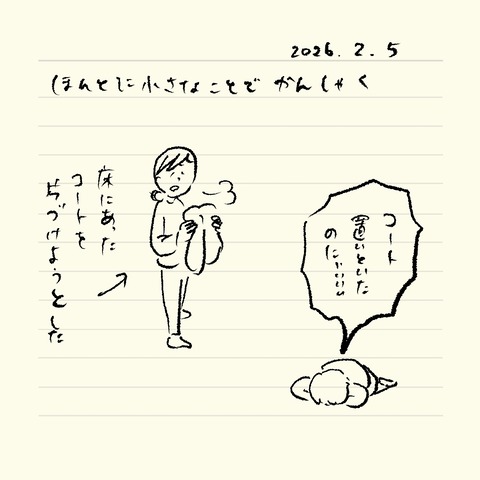 2026.2.5
ほんとに小さなことでかんしゃく
床にあった
コートを
片づけようとした
コート
置いといた
のにぃぃぃぃ